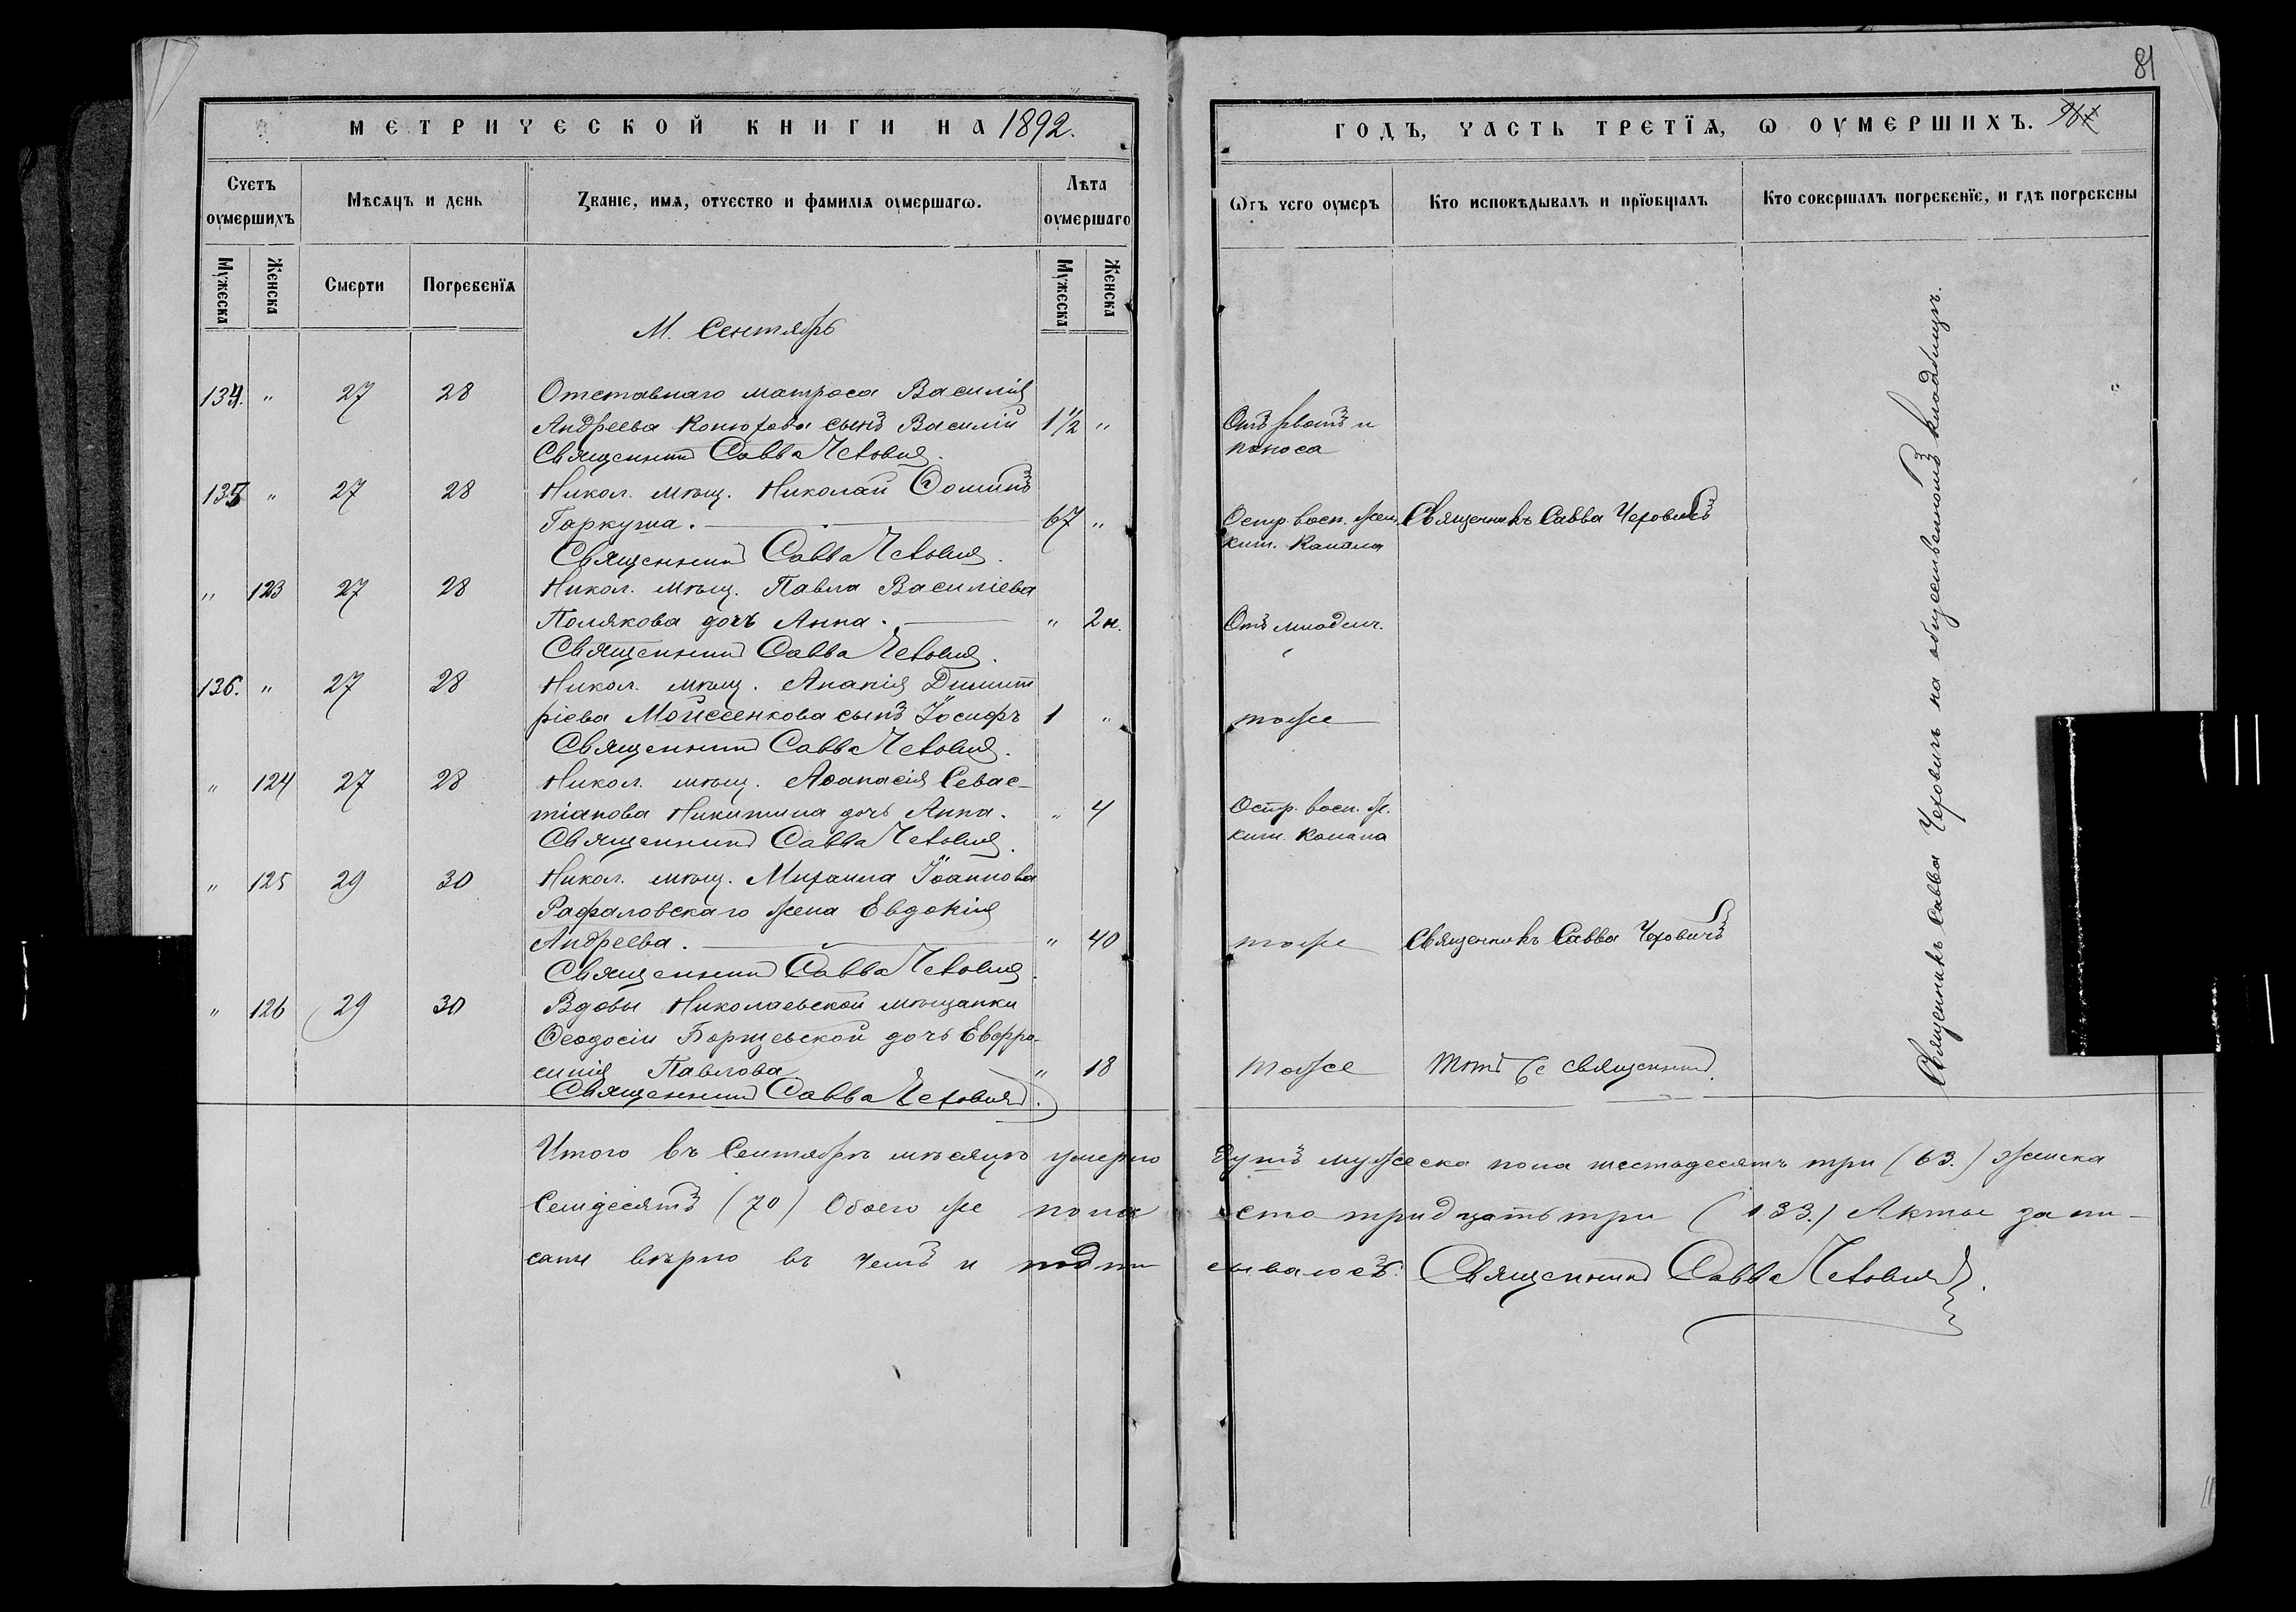 81
МЕТРИЧЕСКОЙ КНИГИ НА 1892.
Счетъ оумершихъ
Мѣсяцъ и день
Званіе, имя, отчество и фамилія оумершагѡ.
Лѣта оумершаго
Мужеска
Женска
Смерти
Погребенїѧ
Мужеска
Женска
М. Сентябрь
134. " 27 28 Отставнаго матроса Василія
Андреева Конюхова сынъ Василій 1½ "
Священникъ Савва Чехович.
135 " 27 28 Никол. мѣщ. Николай Ѳоминъ
Гаркуша. 67 "
Священникъ Савва Чехович.
" 123 27 28 Никол. мѣщ. Павла Василіева
Полякова дочь Анна. " 2 н.
Священникъ Савва Чехович.
136. " 27 28 Никол. мѣщ. Ананія Димит
ріева Мойсеенкова сынъ Іосифъ 1 "
Священникъ Савва Чехович.
" 124 27 28 Никол. мѣщ. Аѳанасія Севас-
тіанова Никитина дочь Анна. " 4
Священникъ Савва Чехович.
" 125 29 30 Никол. мѣщ. Михаила Іоаннова
Рафаловскаго жена Евдокія
Андреева. " 40
Священникъ Савва Чехович.
" 126 29 30 Вдовы Николаевской мѣщанки
Ѳеодосіи Борщевской дочь Евфро-
синія Павлова " 18
Священникъ Савва Чехович.
Итого въ Сентябрѣ мѣсяцѣ умерло
Семдесятъ (70) Обоего же пола
саны вѣрно въ чемъ и подпи
ГОДЪ, ЧАСТЬ ТРЕТЇѦ, Ѡ ОУМЕРШИХЪ.
Ѿтъ чего оумеръ
Кто исповѣдывалъ и прїобщалъ
Кто совершалъ погребенїе, и гдѣ погребены
Отъ рвоты и
поноса
Остр. восп. жел. Священникъ Савва Чеховичъ
киш. канала
Отъ младен.
тоже
Остр. восп. ж.
киш. канала
тоже Священникъ Савва Чеховичъ
тоже тотъ же священникъ
Священникъ Савва Чеховичъ на общественномъ кладбищѣ.
мужеска пола шестьдесятъ три (63.) женска
сто тридцать три (133.) Акты запи-
сываюсь. Священникъ Савва Чехович.